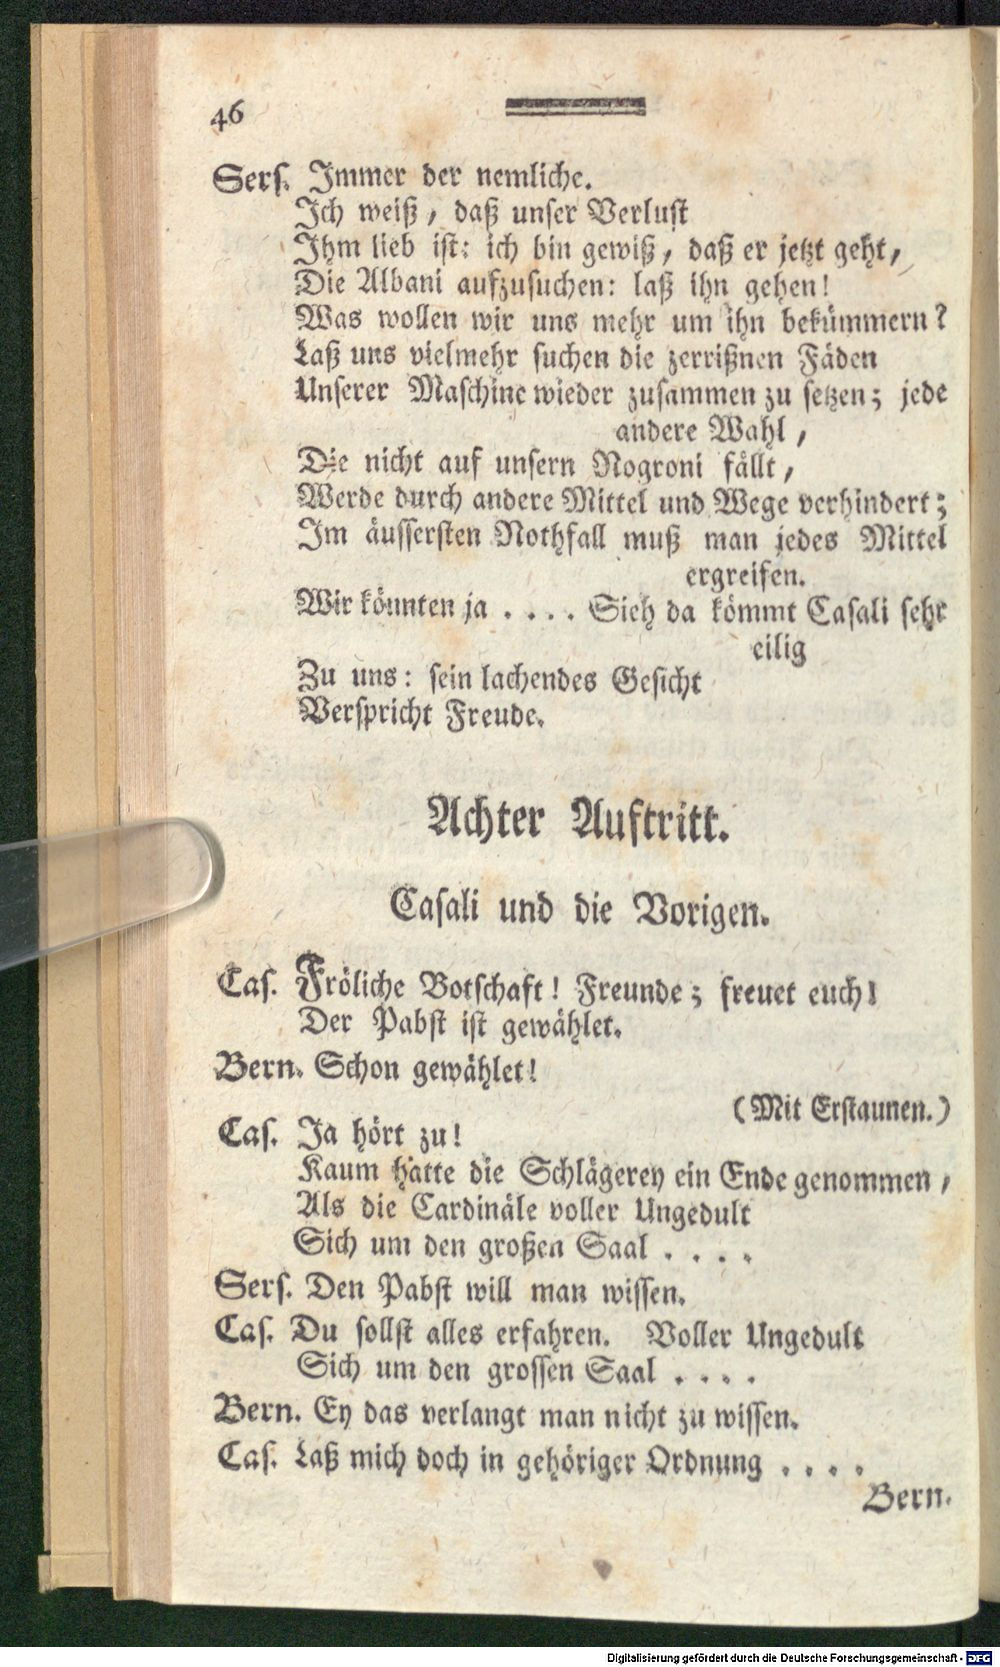 46
Sers. Immer der nemliche.
Ich weiß, daß unser Verlust
Ihm lieb ist: ich bin gewiß, daß er jetzt geht,
Die Albani aufzusuchen: laß ihn gehen!
Was wollen wir uns mehr um ihn bekümmern?
Laß uns vielmehr suchen die zerrißnen Fäden
Unserer Maschine wieder zusammen zu setzen; jede
andere Wahl,
Die nicht auf unsern Nogroni fällt,
Werde durch andere Mittel und Wege verhindert;
Im äussersten Nothfall muß man jedes Mittel
ergreifen.
Wir könnten ja . . . . Sieh da kömmt Casali sehr
eilig
Zu uns: sein lachendes Gesicht
Verspricht Freude.
Achter Auftritt.
Casali und die Vorigen.
Cas. Fröliche Botschaft! Freunde; freuet euch!
Der Pabst ist gewählet.
Bern. Schon gewählet!
(Mit Erstaunen.)
Cas. Ja hört zu!
Kaum hatte die Schlägerey ein Ende genommen,
Als die Cardinäle voller Ungedult
Sich um den großen Saal . . . .
Sers. Den Pabst will man wissen.
Cas. Du sollst alles erfahren. Voller Ungedult
Sich um den grossen Saal . . . .
Bern. Ey das verlangt man nicht zu wissen.
Cas. Laß mich doch in gehöriger Ordnung . . . .
Bern.
Digitalisierung gefördert durch die Deutsche Forschungsgemeinschaft - DFG